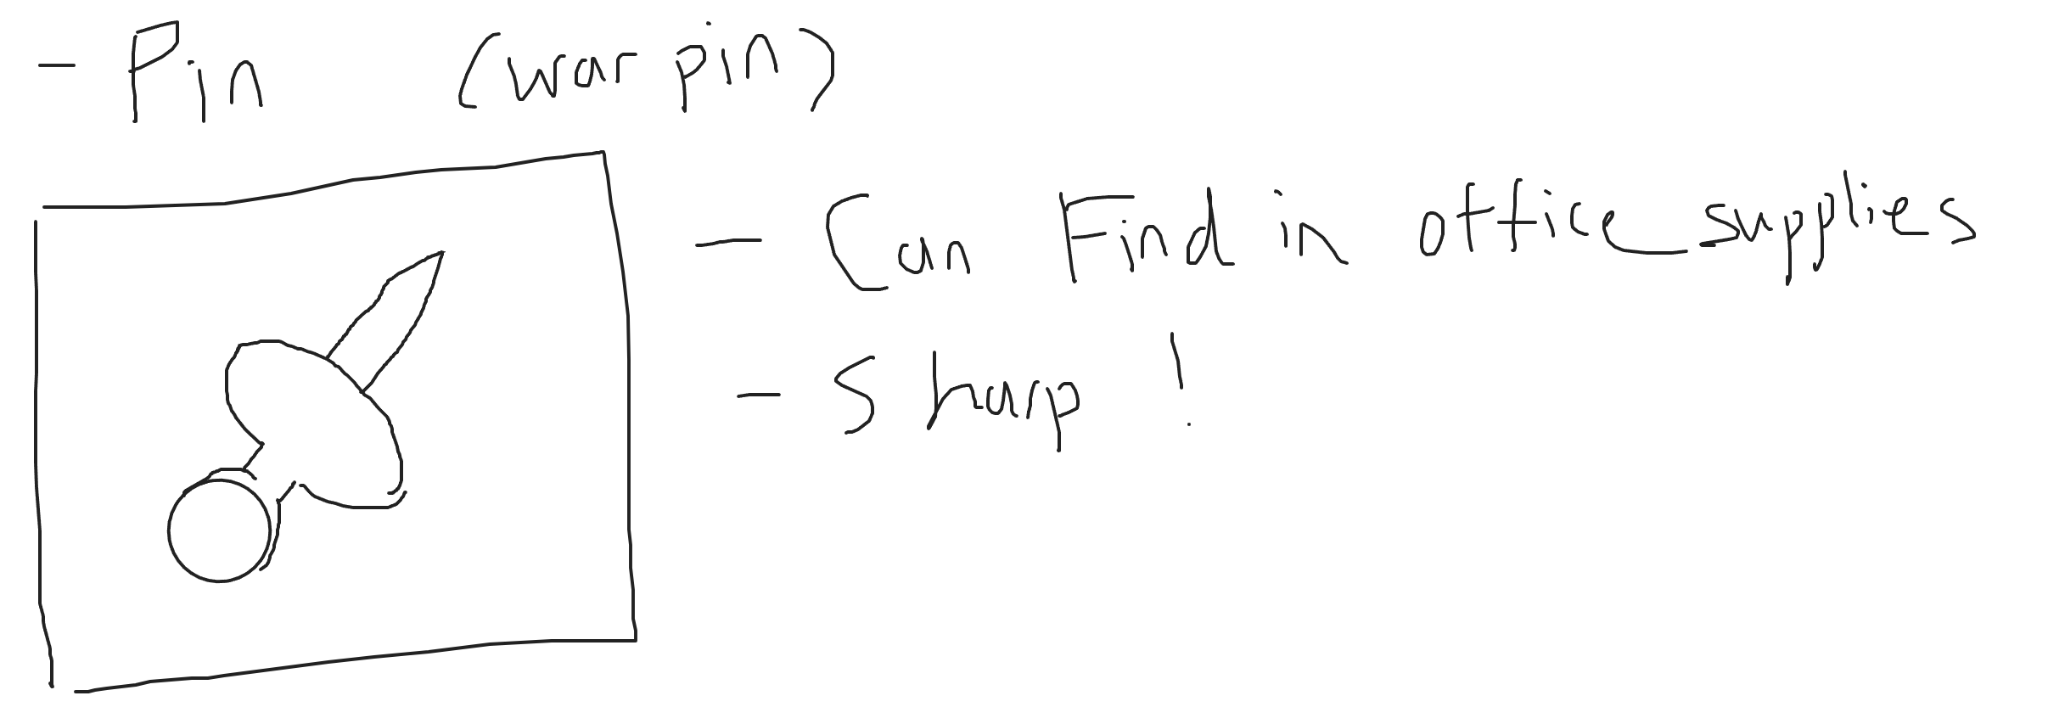 - Pin (war pin)
- Can Find in office supplies
- Sharp!